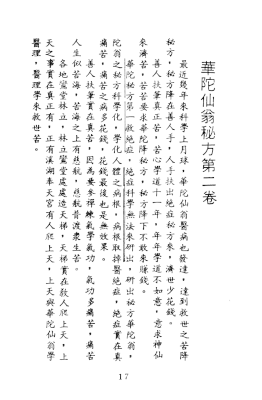 華陀仙翁秘方第二卷
最近幾年來科學上月球，華陀仙翁醫病也發達，達到救世之苦降
秘方，秘方降在善人手，人手扶出絕症秘方來，濟世少花錢。
善人扶筆真正苦，苦心學道十一年，年年學道不如意，意求神仙
來濟苦，苦苦要求華陀降秘方，秘方降下不敢來賺錢。
華陀秘方第一救絕症，絕症科學無法來研出，研出秘方華陀翁，
陀翁之秘方科學化，學化人體之病根，病根取掉醫絕症，絕症實在真
痛苦，痛苦之病多花錢，花錢最後也是無效果。
善人扶筆實在真苦，因為要參禪練氣學氣功，氣功多痛苦，痛苦
人生似苦海，苦海之上有慈航，慈航普渡眾生苦。
各地鸞堂林立，林立鸞堂處處造天梯，天梯實在救人爬上天，上
天之事實在真正有，正有溪湖奉天宮有人爬上天，上天與華陀仙翁學
醫理，醫理學來救世苦。
17